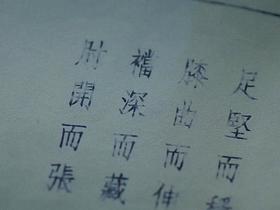 足堅而穩
膝曲而伸
襠深而藏
肋開而張